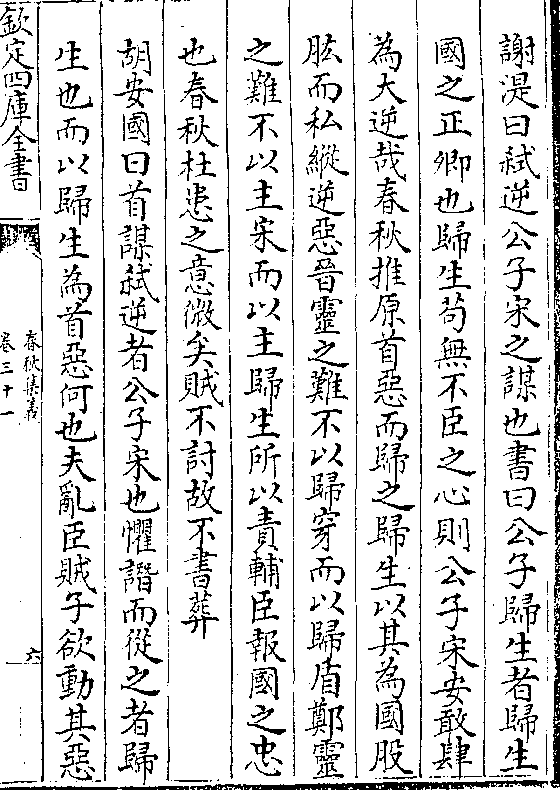 謝湜曰弑逆公子宋之謀也書曰公子歸生者歸生
國之正卿也歸生苟無不臣之心則公子宋安敢肆
為大逆哉春秋推原首惡而歸之歸生以其為國股
肱而私縱逆惡晉靈之難不以歸穿而以歸盾鄭靈
之難不以主宋而以主歸生所以責輔臣報國之忠
也春秋杜患之意微矣賊不討故不書葬
胡安國曰首謀弑逆者公子宋也懼譖而從之者歸
生也而以歸生為首惡何也夫亂臣賊子欲動其惡
欽定四庫全書
春秋集義
卷三十一
六